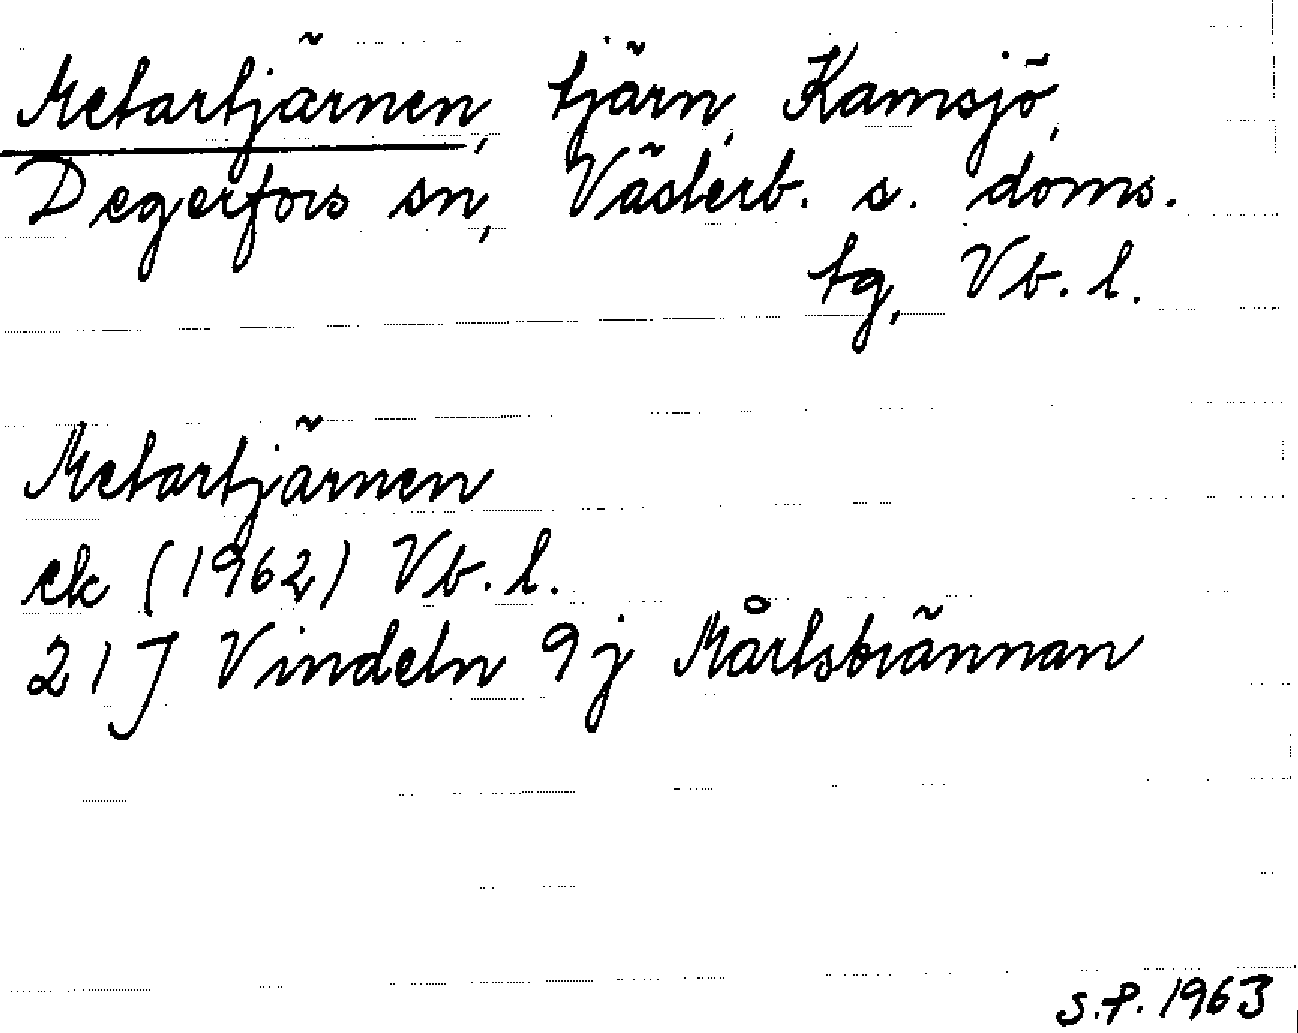 Metartjärnen, tjärn, Kamsjö,
Degerfors sn, Västerb. s. doms.
tg, Vb. l.
Metartjärnen
ek (1962) Vb. l.
21J Vindeln 9j Mårtsbrännan
S.P. 1963